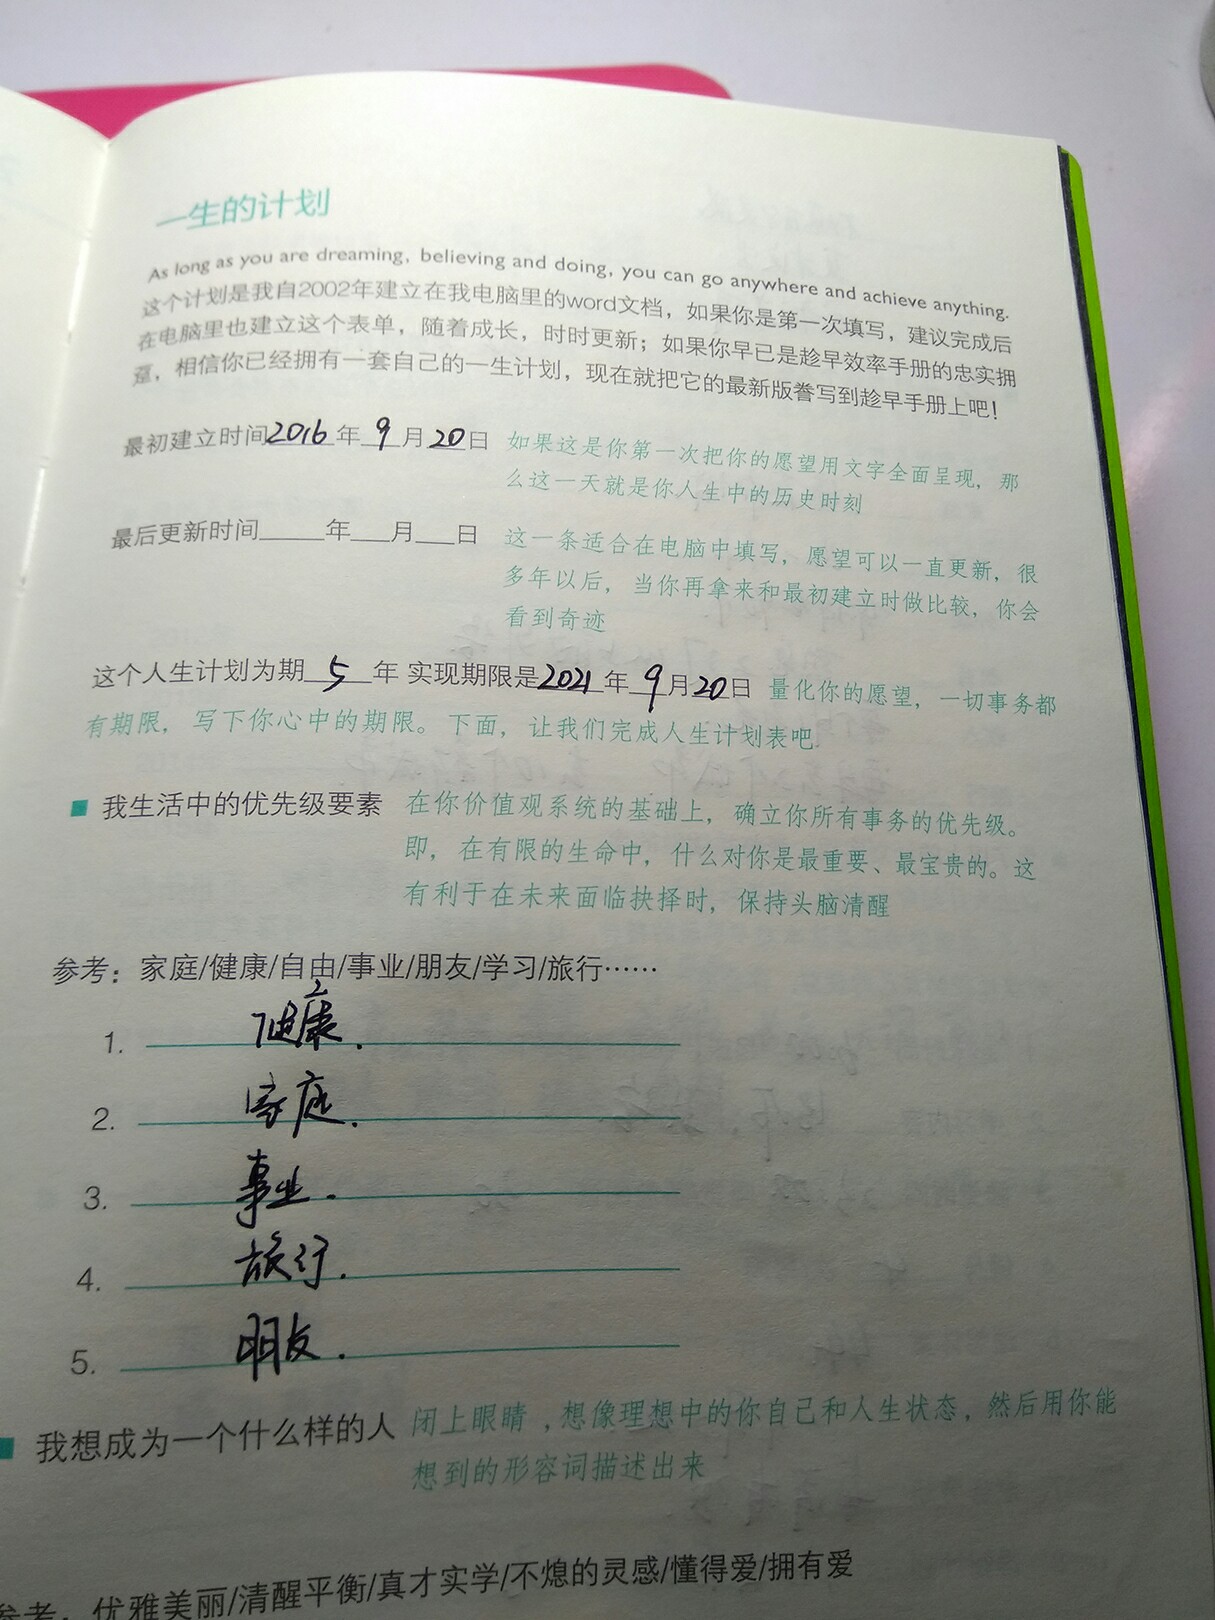 一生的计划
As long as you are dreaming, believing and doing, you can go anywhere and achieve anything.
这个计划是我自2002年建立在我电脑里的word文档，如果你是第一次填写，建议完成后
在电脑里也建立这个表单，随着成长，时时更新；如果你早已是趁早效率手册的忠实拥
趸，相信你已经拥有一套自己的一生计划，现在就把它的最新版誊写到趁早手册上吧！
最初建立时间2016年9月20日 如果这是你第一次把你的愿望用文字全面呈现，那
么这一天就是你人生中的历史时刻
最后更新时间_____年___月___日 这一条适合在电脑中填写，愿望可以一直更新，很
多年以后，当你再拿来和最初建立时做比较，你会
看到奇迹
这个人生计划为期5年 实现期限是2021年9月20日 量化你的愿望，一切事务都
有期限，写下你心中的期限。下面，让我们完成人生计划表吧
我生活中的优先级要素 在你价值观系统的基础上，确立你所有事务的优先级。
即，在有限的生命中，什么对你是最重要、最宝贵的。这
有利于在未来面临抉择时，保持头脑清醒
参考：家庭/健康/自由/事业/朋友/学习/旅行……
1. 健康.
2. 家庭.
3. 事业.
4. 旅行.
5. 朋友.
我想成为一个什么样的人 闭上眼睛，想像理想中的你自己和人生状态，然后用你能
想到的形容词描述出来
参考：优雅美丽/清醒平衡/真才实学/不熄的灵感/懂得爱/拥有爱